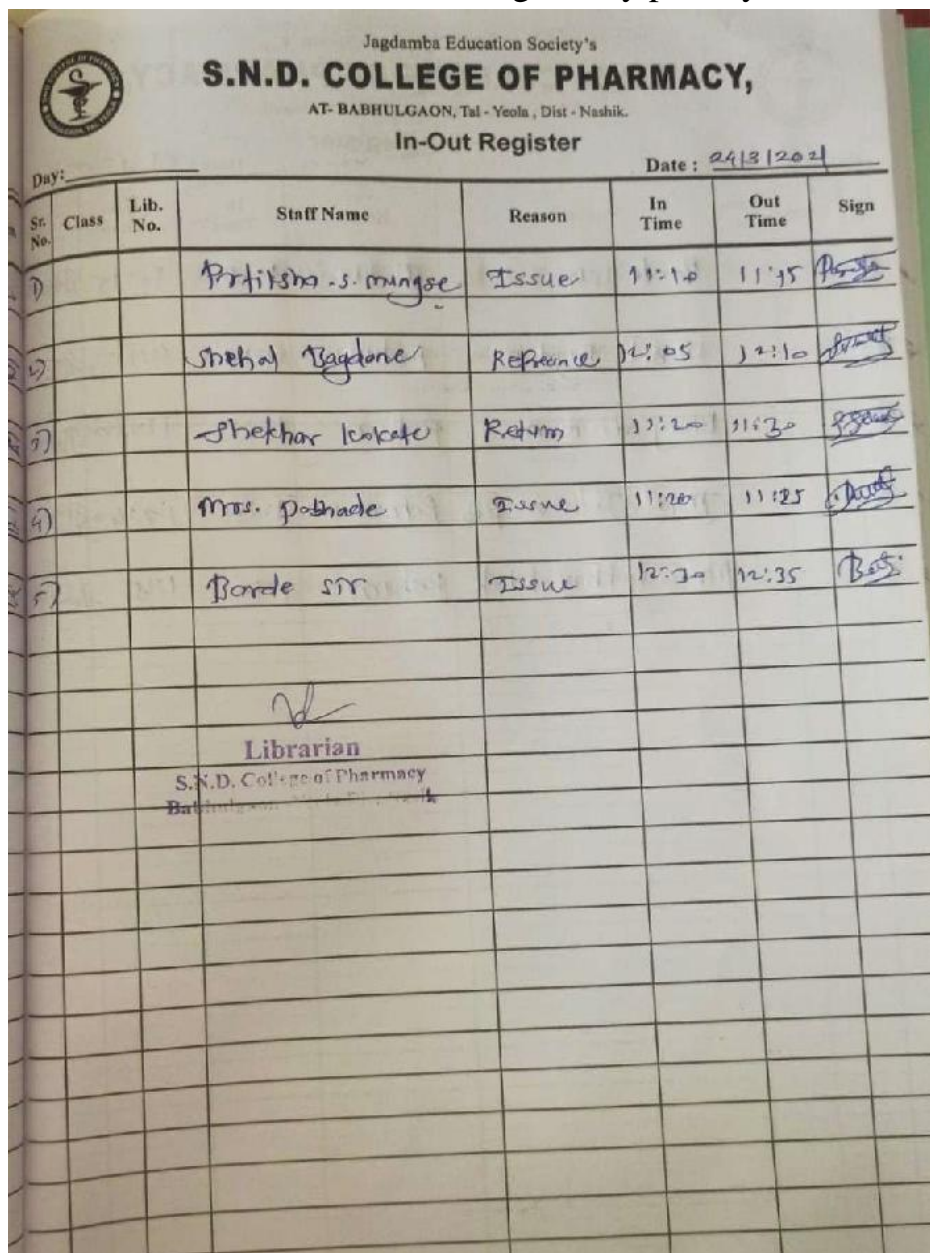 Jagdamba Education Society's
S.N.D. COLLEGE OF PHARMACY,
AT- BABHULGAON, Tal - Yeola , Dist - Nashik.
In-Out Register
Day: Date : 24/3/2021
Sr. No. Class Lib. No. Staff Name Reason In Time Out Time Sign
1) Prtiksha .S. mungse Issue 11:10 11:15
2) Snehal Bagdane Refreance 12:05 12:10
3) Shekhar kokate Return 11:20 11:30
4) Mrs. Issue 11:20 11:25
5) Borde sir Issue 12:30 12:35
Librarian
S.N.D. College of Pharmacy